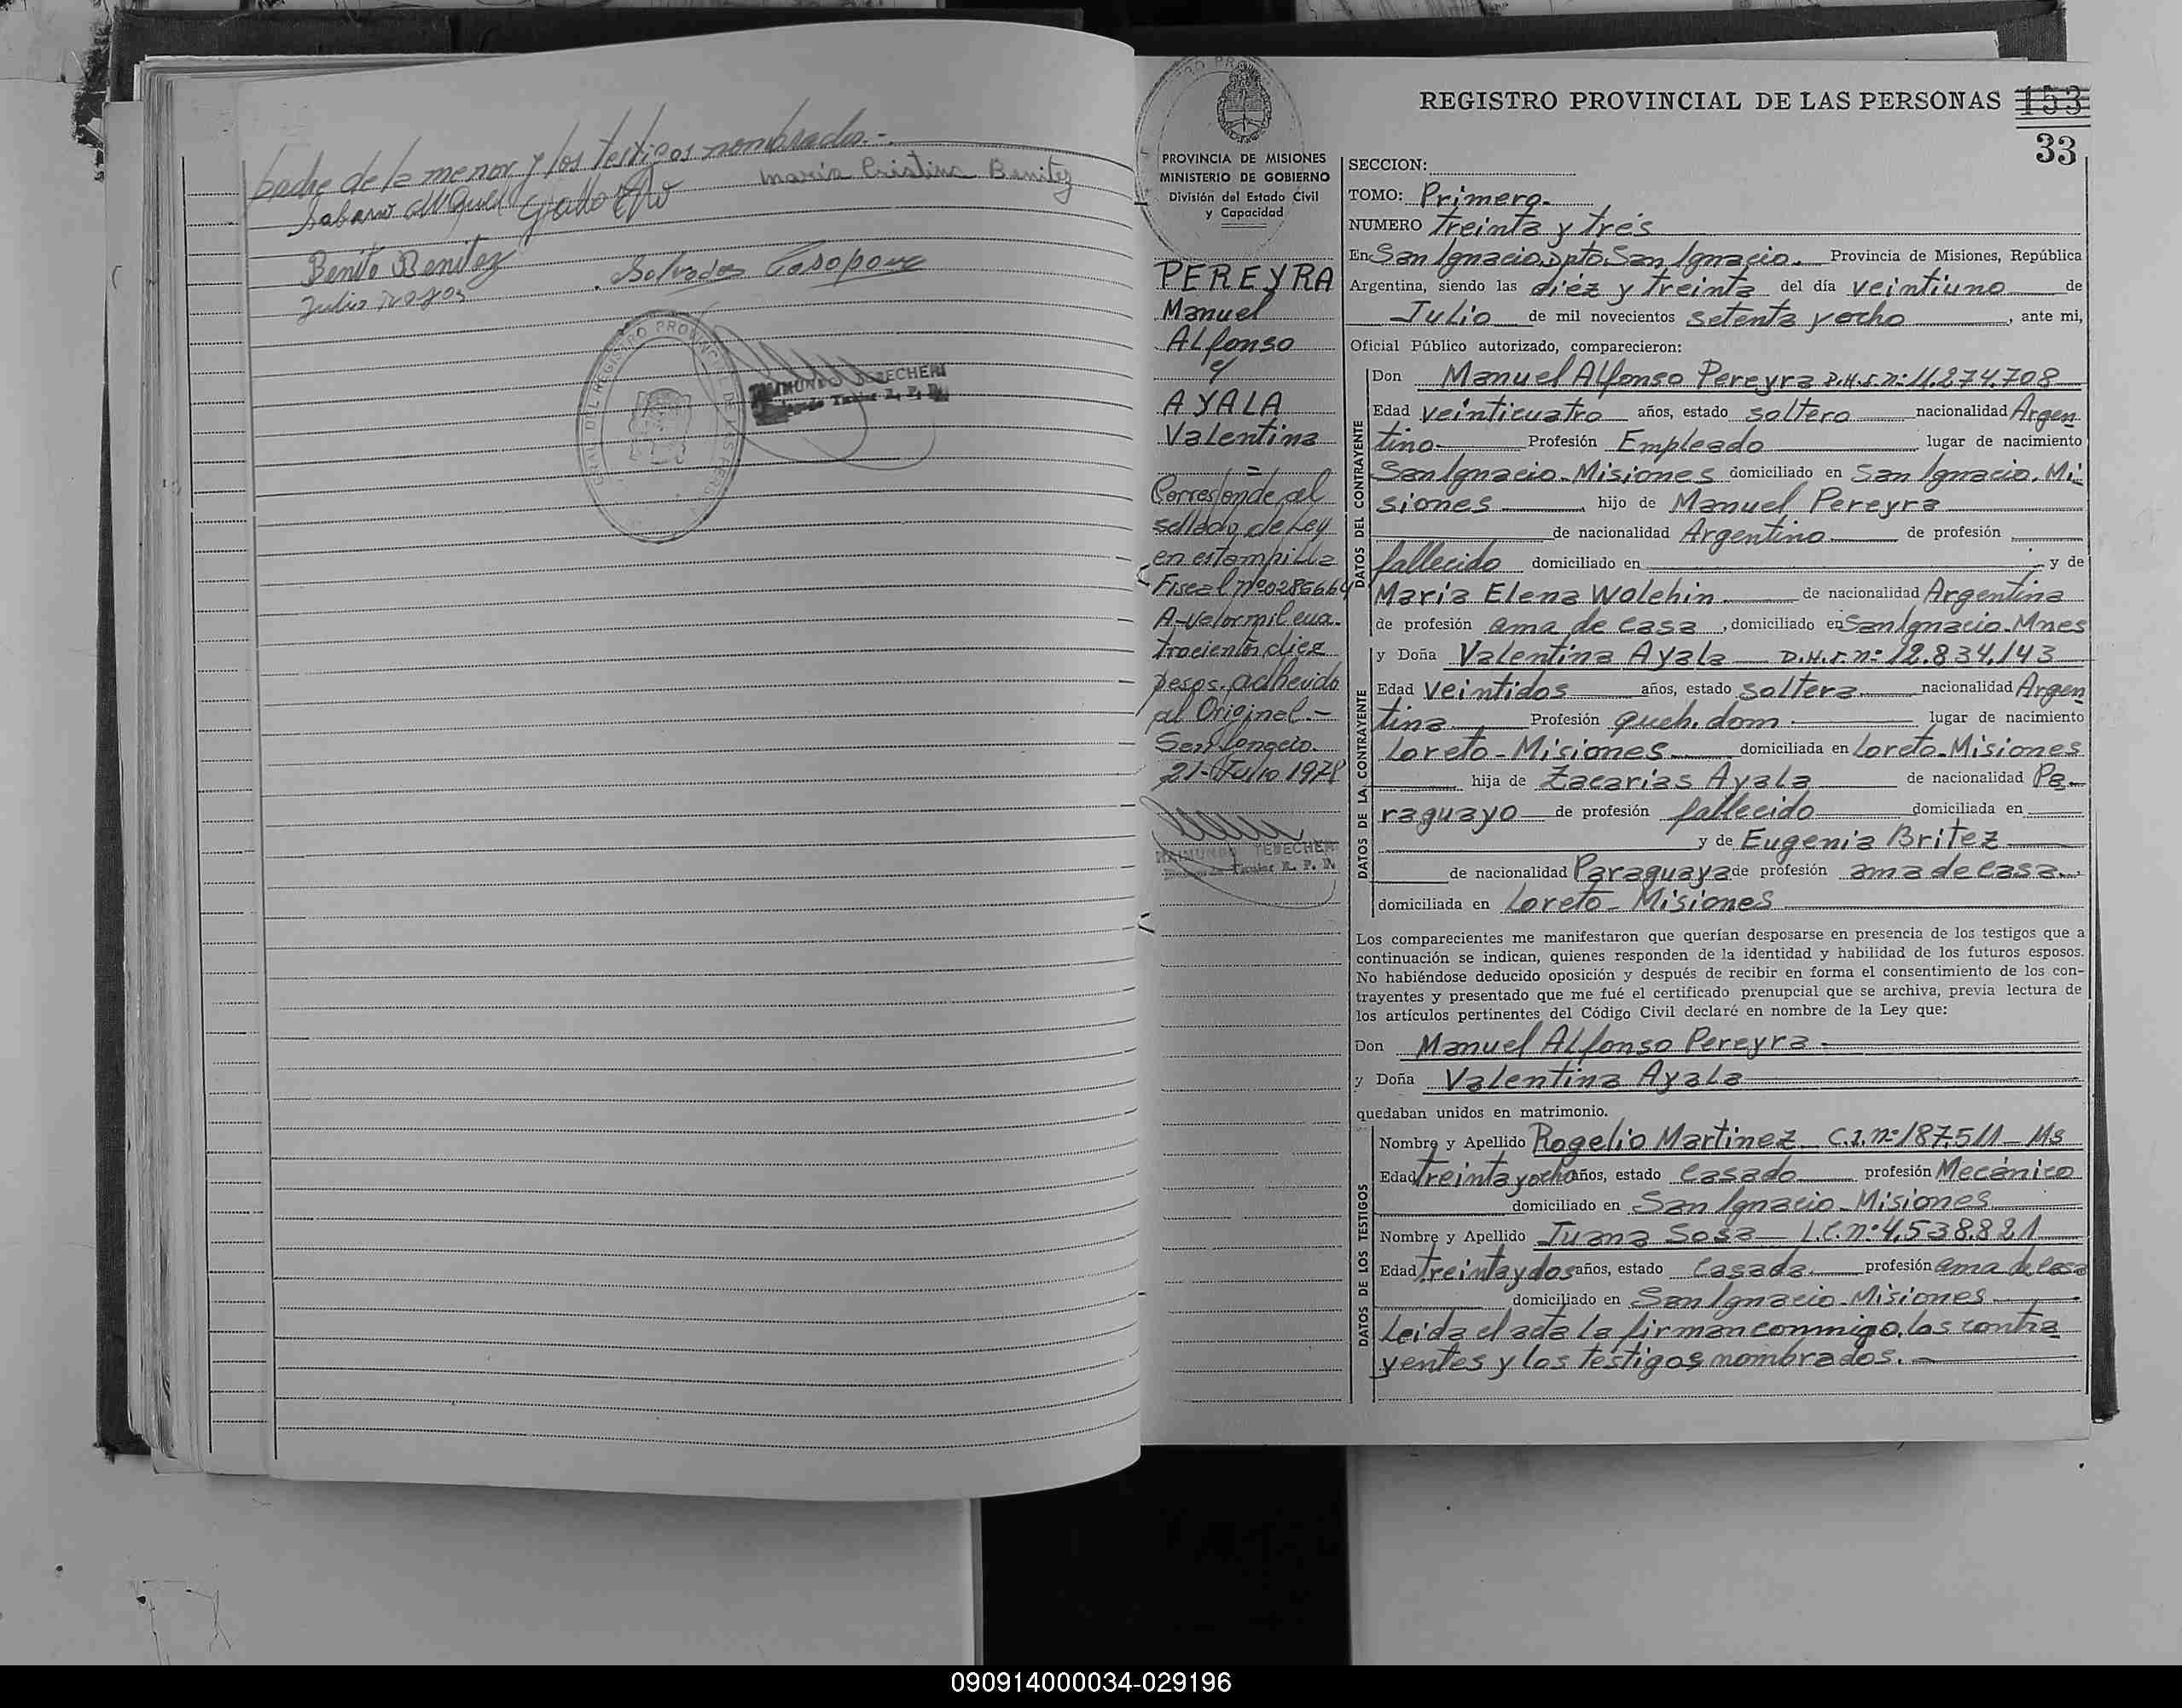 padre de la menor y los testigos nombrados.-
Maria Cristina Benitez
Benito Benitez
Salvador
Julio
PROVINCIA DE MISIONES
MINISTERIO DE GOBIERNO
División del Estado Civil
y Capacidad
PEREYRA
Manuel
Alfonso
y
AYALA
Valentina
=
Corresponde al
sellado de Ley
en estampilla
Fiscal Nº0285664
A-valor mil cua-
trocientos diez
pesos. adherido
al Original.-
San Ignacio.
21-Julio 1978
RAIMUNDO
REGISTRO PROVINCIAL DE LAS PERSONAS 153
33
SECCION:
TOMO: Primero.
NUMERO treinta y trés
En San Ignacio. Dpto. San Ignacio. Provincia de Misiones, República
Argentina, siendo las diéz y treinta del día veintiuno de
Julio de mil novecientos setenta y ocho, ante mi,
Oficial Público autorizado, comparecieron:
DATOS DEL CONTRAYENTE
Don Manuel Alfonso Pereyra D.N.I. nº 11.274.708
Edad veinticuatro años, estado soltero nacionalidad Argen
tino Profesión Empleado lugar de nacimiento
San Ignacio-Misiones domiciliado en San Ignacio. Mi
siones, hijo de Manuel Pereyra
de nacionalidad Argentino de profesión
fallecido domiciliado en y de
Maria Elena Wolchin de nacionalidad Argentina
de profesión ama de casa, domiciliado en San Ignacio-Mnes
DATOS DE LA CONTRAYENTE
y Doña Valentina Ayala D.N.I. nº 12.834.143
Edad veintidos años, estado soltera nacionalidad Argen
tina Profesión queh. dom. lugar de nacimiento
Loreto-Misiones domiciliada en Loreto-Misiones
hija de Zacarias Ayala de nacionalidad Pa-
raguayo de profesión fallecido domiciliada en
y de Eugenia Britez
de nacionalidad Paraguaya de profesión ama de casa.,
domiciliada en Loreto-Misiones
Los comparecientes me manifestaron que querían desposarse en presencia de los testigos que a
continuación se indican, quienes responden de la identidad y habilidad de los futuros esposos.
No habiéndose deducido oposición y después de recibir en forma el consentimiento de los con-
trayentes y presentado que me fué el certificado prenupcial que se archiva, previa lectura de
los artículos pertinentes del Código Civil declaré en nombre de la Ley que:
Don Manuel Alfonso Pereyra
y Doña Valentina Ayala
quedaban unidos en matrimonio.
DATOS DE LOS TESTIGOS
Nombre y Apellido Rogelio Martinez C.I. nº 187.511-Ms
Edad treinta y ocho años, estado Casado profesión Mecánico
domiciliado en San Ignacio-Misiones
Nombre y Apellido Juana Sosa L.C. nº 4.538.821
Edad treinta y dos años, estado Casada profesión ama de casa
domiciliado en San Ignacio-Misiones
Leida el acta la firman conmigo, los contra
yentes y los testigos nombrados.-
090914000034-029196